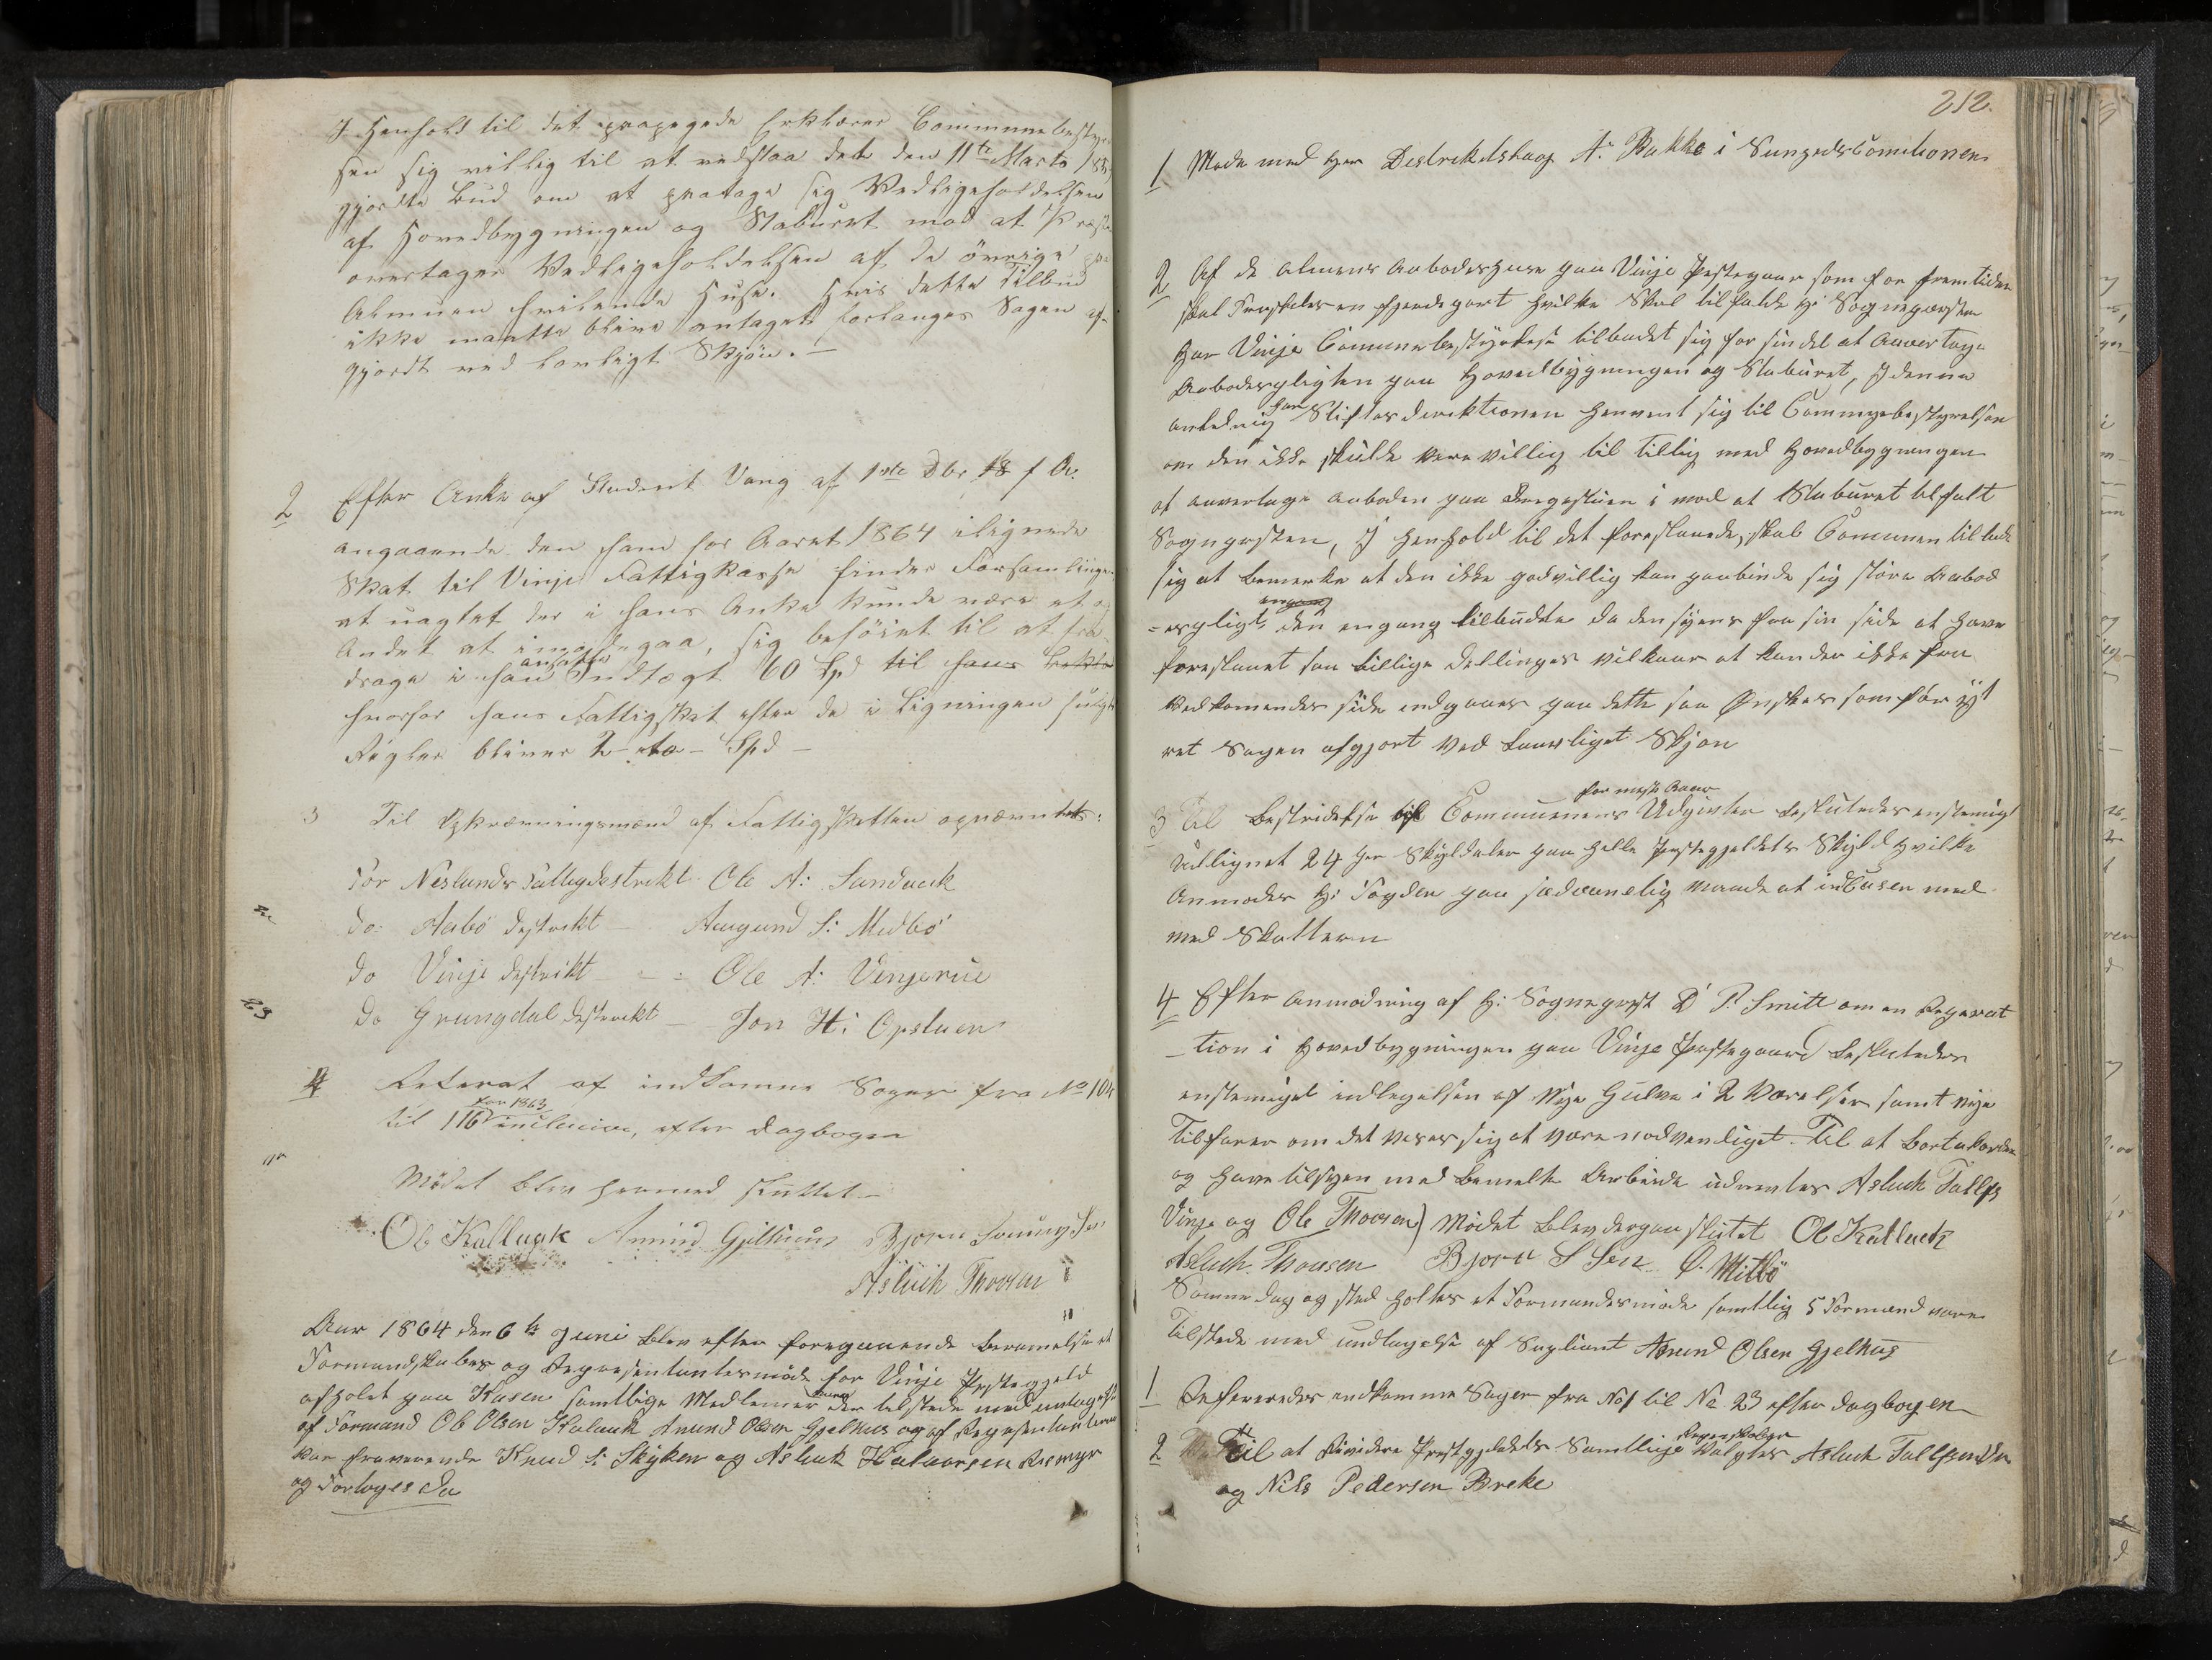 I Henhold til det paapegede erklærer Communebestyrel
sen sig villig til at vedstaa det den 11te Marts 185
gjordte Bud om at paatage sig Vedligeholdelsen
af Hovedbygningen og Staburet mod at Præste
overtager Vedligeholdelsen af de övrige paa
Almuen hvilende Huse. Hvis dette Tilbud
ikke maatte blive antaget forlanges Sagen af-
gjordt ved lovligt Skjön. —
2 Efter Anke af Student Vang af 1ste Dbr 18 f Ar.
angaaende den ham for Aaret 1864 ilignede
Skat til Vinje Fattigkasse finder Forsamlingen
at uagtet der i hans Anke kunde være et og
Andet at imødegaa, sig beföiet til at fra-
drage i hans ansatte Indtægt 60 Spd til hans
hvorfor hans Fattigskat efter de i Ligningen fulgte
Regler bliver 2 - to - Spd —
3 Til Opkrævningsmænd af Fattigskatten opnævntes:
For Neslands Fattigdestrekt Ole A: Sandvek
do: Aabö Destrekt — Aaugund S: Midbö
do Vinje destrikt — Ole A: Venjerui
do Grungdal destrekt — Jon H: Opstuen
4 Referat af indkomne Sager fra No 104
til 116 for 1863 inclusive, efter Dagbogen
Mödet blev hermed sluttet —
Ol Kalluak Anund Gjelhuus Bjorn
Aslak Thovsen
Aar 1864 den 6te Juni blev efter foregaaende Berammelse et
Formandskabes og Representantesmöde for Vinje Prestegjeld
afholdt paa Husen samtlige Medlemer vare tilstede med untagelse
af Formand Ole Olsen Kaluak Anund Olsen Gjelhus og af Representanterne
var fraværende Knud S: Skyken og Asluk Halvorsen Rosmyr
og Fortoges Da
212.
1 Mode med Her Destrekdslæge A. Bakke i Sunhedscomitionen
2 Af de almens Aabodeshuse paa Vinje Prestegaar som for fremtiden
skal Fraskeles en fjerdepart hvilke Skal tilfalde Hr Sognepræsten
har Vinje Communebestyrelse tilbudet sig for sin del at Auvertage
Aabodespligten paa Hovedbygningen og Staburet, I denne
anledning har Stiftesdirektionen Henvent sig til Communebestyrelsen
om den ikke skulde være villig til Tillig med Hovedbygningen
at auvertage Aaboden paa Borgestuen i mod at Staburet tilfalt
Sognpresten, I Henhold til det foreslaaede, skal Comunen tillade
sig at bemerke at den ikke godvillig kan paabinde sig störe Aabod
=espligt den engang tilbudte da den synes fra sin side at have
foreslaaet saa billige Dellinges vilkaar at kan der ikke fra
Vedkomendes side indgaaes paa dette saa Ønskes som för yt
ret Sagen afgjort Ved Lauvligt Skjön
3 Til Bestridelse af Communens Udgivter for neste Aar besluttedes enstemigt
Udlignet 24 Skyldaler paa Helle Prestegjeldets Skyld Hvilke
Anmodes Hr Fogden paa sedvanelig maade at indCasere med
med Skatterne
4 Efter Anmodning af Hr Sogneprest D P. Smitt om en Reperat
-tion i Hovedbygningen paa Vinje Prestegaard besluttedes
enstemigt indlegelsen af Nye Gulve i 2 Værelser samt nye
Tilfarer om det viser sig at være nodvendiget. Til at Bortakordere
og have tilsyn med bemelte Arbeide udnevntes Asluck Tallefs
Vinje og Ole Thovsen) Mödet blev derpaa slutet Ol Kalluck
Asluch Thousen Bjorn S Sen O. Mitbö
Samme dag og sted holtes et Formandesmöde samtlig 5 Formænd vare
Tilstede med undtagelse af Supliant Anund Olsen Gjelhus
1 Refereredes indkomne Sager fra No 1 til No 23 efter dagbogen
2 Til at Revidere Prestgjeldets Samtlige Regenskaber Valgtes Asluch Tallefsen
og Nils Pedersen Breke